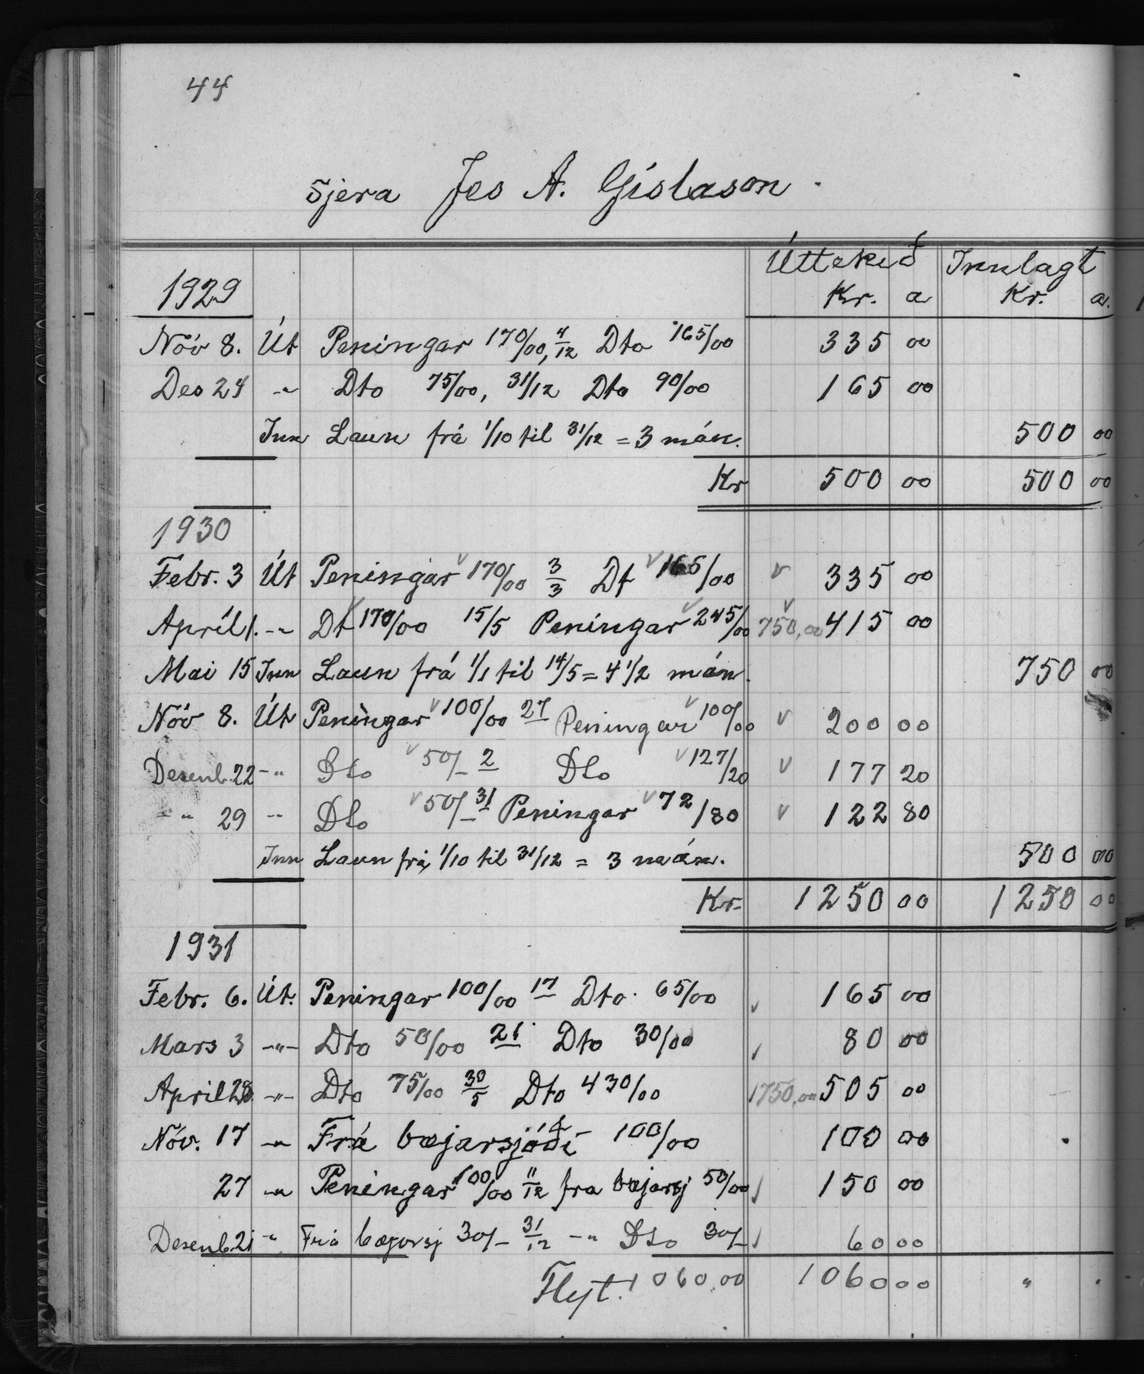 44
Sjera Jes A. Gíslason.
Úttekið Innlagt
1929 Kr. a Kr. a.
Nóv 8. Út Peningar 170/00, 4/12 Dto 165/00 335 00
Des 24 -"- Dto 75/00, 31/12 Dto 90/00 165 00
Inn Laun frá 1/10 til 31/12 = 3 mán. 500 00
Kr 500 00 500 00
1930
Febr. 3 Út Peningar 170/00 3/3 Dt 165/00 335 00
Apríl 1. -"- Dt 170/00 15/5 Peningar 245/00 750,00 415 00
Mai 15 Inn Laun frá 1/1 til 14/5 = 4 1/2 mán. 750 00
Nóv 8. Út Peningar 100/00 27 Peningar 100/00 200 00
Desemb. 22 -"- Dto 50/- 2 Dto 127/20 177 20
-"- 29 -"- Dto 50/- 31 Peningar 72/80 122 80
Inn Laun frá 1/10 til 31/12 = 3 mán. 500 00
Kr. 1250 00 1250 00
1931
Febr. 6. Út. Peningar 100/00 17 Dto. 65/00 165 00
Mars 3 -"- Dto 50/00 21 Dto 30/00 80 00
Apríl 28 -"- Dto 75/00 30/5 Dto 430/00 1750,00 505 00
Nóv. 17 -"- Frá bæjarsjóði 100/00 100 00
27 -"- Peningar 100/00 11/12 fra bæjarsj 50/00 150 00
Desemb. 21 -"- Frá bæjarsj 30/- 31/12 -"- Dto 30/- 60 00
Flyt. 1060,00 1060 00 "